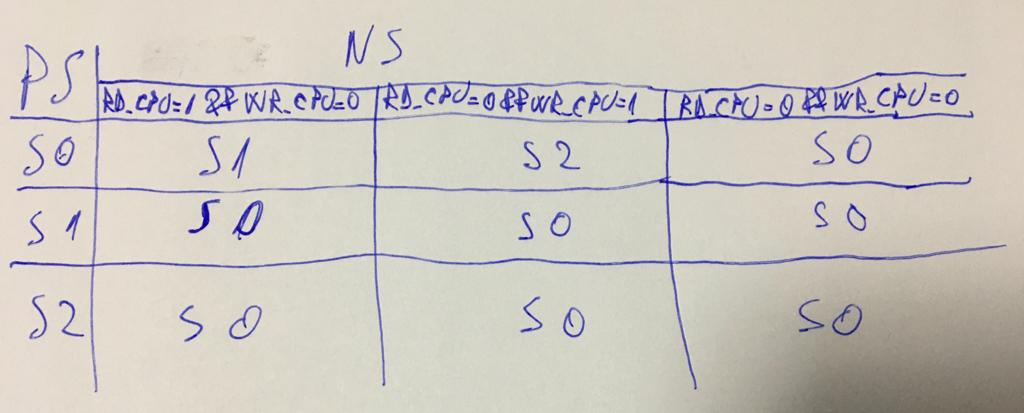 NS
PS
RD_CPU=1 && WR_CPU=0 RD_CPU=0 && WR_CPU=1 RD_CPU=0 && WR_CPU=0
S0 S1 S2 S0
S1 S0 S0 S0
S2 S0 S0 S0